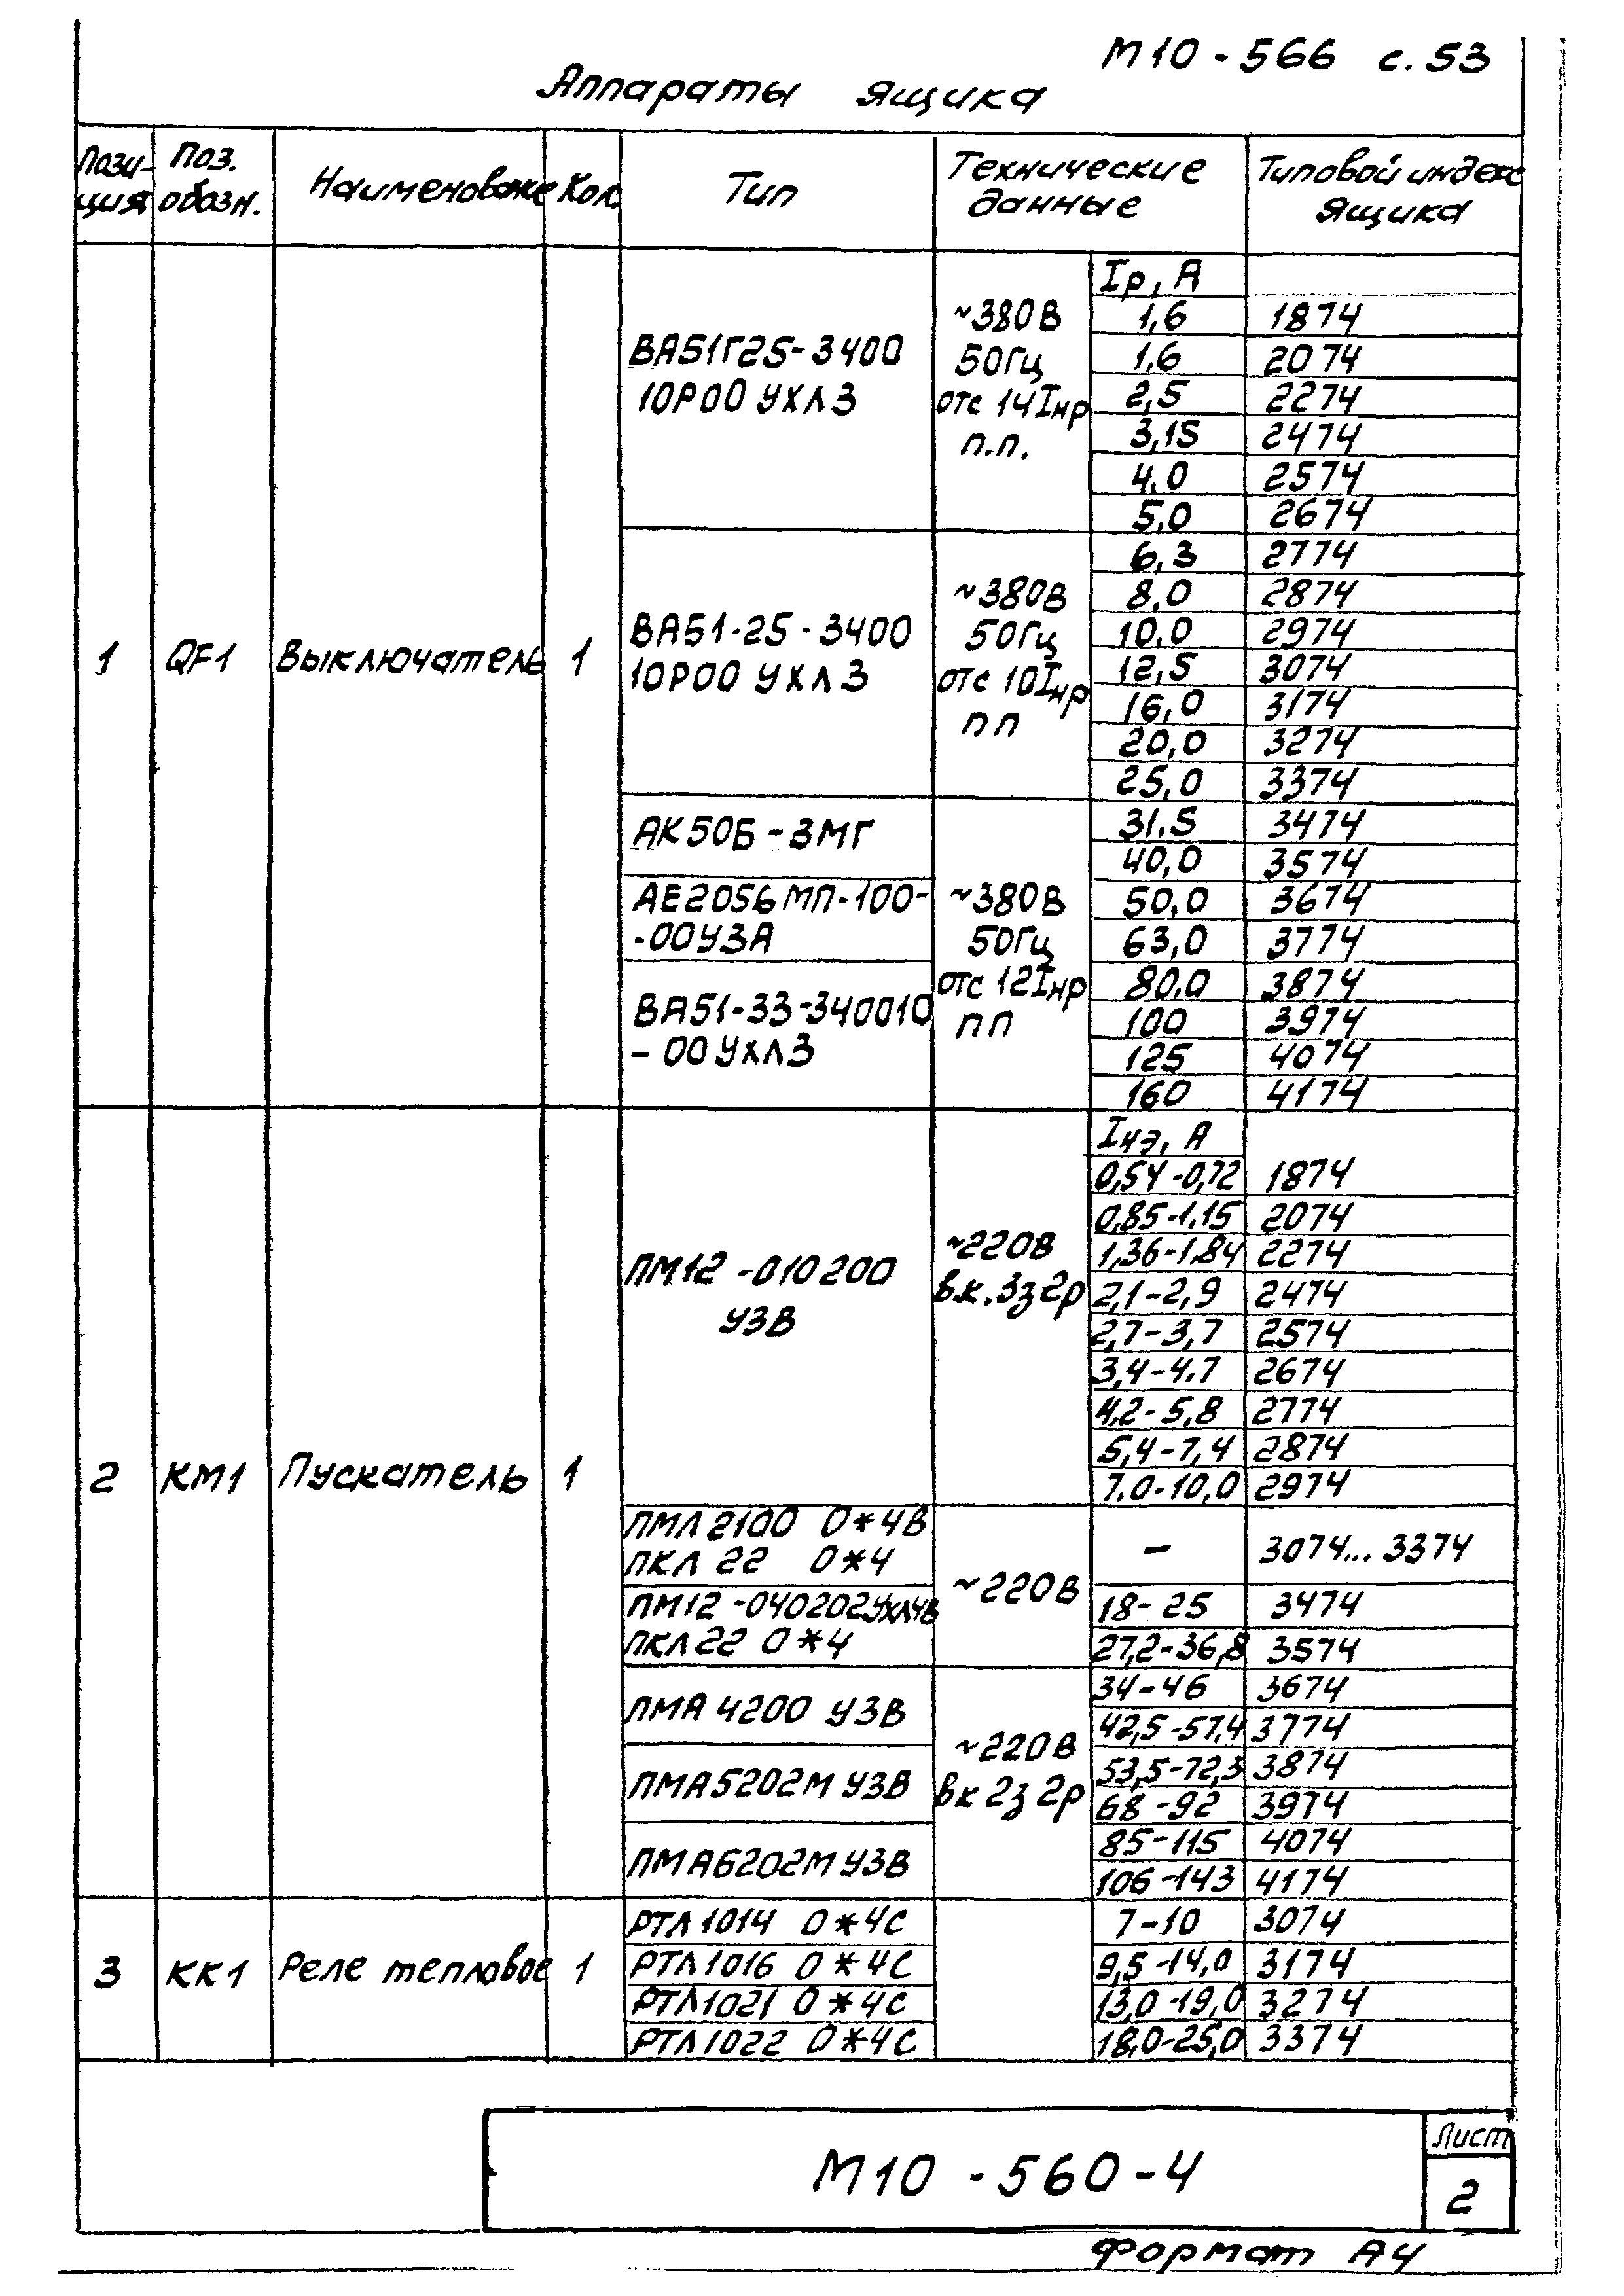 М10-566 с.53
Аппараты ящика
Позиция Поз. обозн. Наименование Кол. Тип Технические данные Типовой индекс ящика
1 QF1 Выключатель 1
ВА51Г25-3400
10Р00 УХЛ3
~380В
50Гц
отс 14Iнр
п.п.
Iр, А
1,6 1874
1,6 2074
2,5 2274
3,15 2474
4,0 2574
5,0 2674
ВА51-25-3400
10Р00 УХЛ3
~380В
50Гц
отс 10Iнр
пп
6,3 2774
8,0 2874
10,0 2974
12,5 3074
16,0 3174
20,0 3274
25,0 3374
АК50Б-3МГ
АЕ2056МП-100-
-00У3А
ВА51-33-340010
-00УХЛ3
~380В
50Гц
отс 12Iнр
пп
31,5 3474
40,0 3574
50,0 3674
63,0 3774
80,0 3874
100 3974
125 4074
160 4174
2 КМ1 Пускатель 1
ПМ12-010200
У3В
~220В
вк.3з2р
Iнэ, А
0,54-0,72 1874
0,85-1,15 2074
1,36-1,84 2274
2,1-2,9 2474
2,7-3,7 2574
3,4-4,7 2674
4,2-5,8 2774
5,4-7,4 2874
7,0-10,0 2974
ПМЛ2100 О*4В
ПКЛ 22 О*4
~220В
- 3074...3374
ПМ12-040202УХЛ4В
ПКЛ22 О*4
18-25 3474
27,2-36,8 3574
ПМА 4200 У3В
ПМА5202М У3В
ПМА6202М У3В
~220В
вк 2з 2р
34-46 3674
42,5-57,4 3774
53,5-72,3 3874
68-92 3974
85-115 4074
106-143 4174
3 КК1 Реле тепловое 1
РТЛ1014 О*4С 7-10 3074
РТЛ1016 О*4С 9,5-14,0 3174
РТЛ1021 О*4С 13,0-19,0 3274
РТЛ1022 О*4С 18,0-25,0 3374
М10-560-4
Лист
2
Формат А4